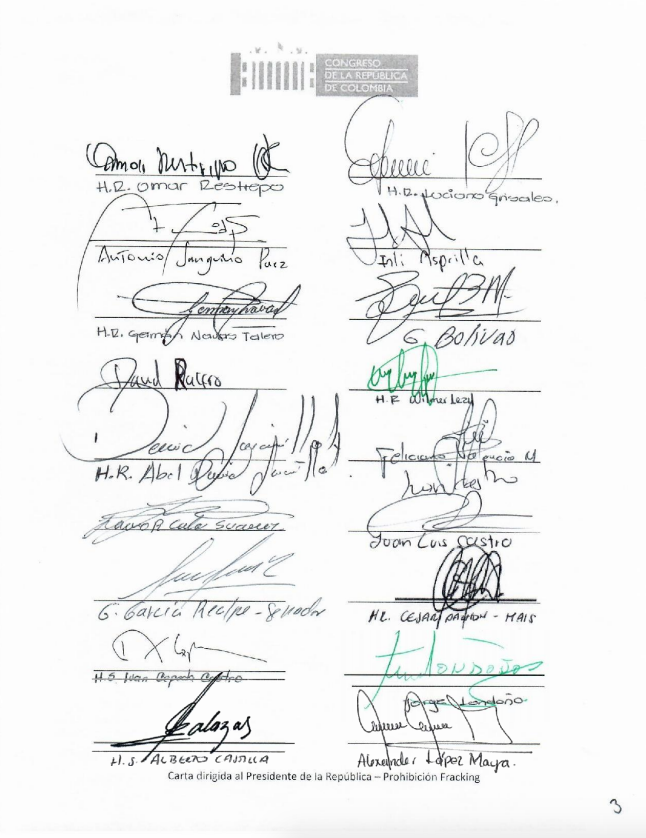 CONGRESO
DE LA REPÚBLICA
DE COLOMBIA
Omar Restrepo
H.R. Omar Restrepo
H.R. Luciano Grisales.
Antonio Sanguino Paez
Inti Asprilla
German Navas
H.R. Germán Navas Talero
G Bolívar
David Racero
H.R Wilmer Leal
H.R. Abel David Jaramillo
Feliciano Valencia M
Juan Luis Castro
G. García Realpe - Senador
HR. CESAR PACHON - MAIS
H.S Ivan Cepeda Castro
LONDOÑO
Jorge Londoño
H.S. ALBERTO CASTILLA
Alexander López Maya.
Carta dirigida al Presidente de la República – Prohibición Fracking
3